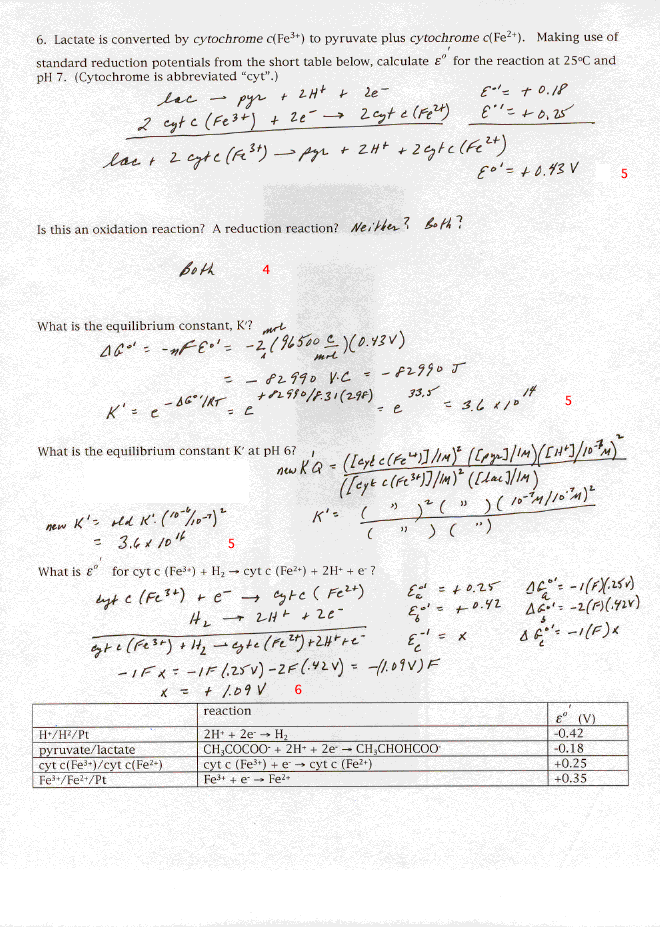 6. Lactate is converted by cytochrome c(Fe³⁺) to pyruvate plus cytochrome c(Fe²⁺). Making use of
standard reduction potentials from the short table below, calculate ε°' for the reaction at 25°C and
pH 7. (Cytochrome is abbreviated "cyt".)
lac → pyr + 2H⁺ + 2e⁻ ε°' = + 0.18
2 cyt c (Fe³⁺) + 2e⁻ → 2 cyt c (Fe²⁺) ε°' = + 0.25
lac + 2 cyt c (Fe³⁺) → pyr + 2H⁺ + 2 cyt c (Fe²⁺)
ε°' = + 0.43 V 5
Is this an oxidation reaction? A reduction reaction? Neither? Both?
Both 4
What is the equilibrium constant, K'?
ΔG°' = -nFε°' = -2 mol (96500 C/mol)(0.43V)
= - 82990 V·C = - 82990 J
K' = e^(-ΔG°'/RT) = e^(+82990/8.31(298)) = e^33.5 = 3.6 x 10¹⁴ 5
What is the equilibrium constant K' at pH 6?
new K'Q = ([cyt c(Fe²⁺)]/1M)² ([pyr]/1M)([H⁺]/10⁻⁷M)²
([cyt c(Fe³⁺)]/1M)² ([lac]/1M)
K' = ( " )² ( " )( 10⁻⁷M/10⁻⁷M)²
( " ) ( " )
new K' = old K' (10⁻⁶/10⁻⁷)²
= 3.6 x 10¹⁶ 5
What is ε°' for cyt c (Fe³⁺) + H₂ → cyt c (Fe²⁺) + 2H⁺ + e⁻?
cyt c (Fe³⁺) + e⁻ → cyt c (Fe²⁺) ε°'a = + 0.25 ΔG°'a = -1(F)(.25V)
H₂ → 2H⁺ + 2e⁻ ε°'b = + 0.42 ΔG°'b = -2(F)(.42V)
cyt c (Fe³⁺) + H₂ → cyt c (Fe²⁺) + 2H⁺ + e⁻ ε°'c = x ΔG°'c = -1(F)x
-1Fx = -1F(.25V) - 2F(.42V) = -(1.09V)F
x = + 1.09 V 6
reaction ε°' (V)
H⁺/H²/Pt 2H⁺ + 2e⁻ → H₂ -0.42
pyruvate/lactate CH₃COCOO⁻ + 2H⁺ + 2e⁻ → CH₃CHOHCOO⁻ -0.18
cyt c(Fe³⁺)/cyt c(Fe²⁺) cyt c (Fe³⁺) + e⁻ → cyt c (Fe²⁺) +0.25
Fe³⁺/Fe²⁺/Pt Fe³⁺ + e⁻ → Fe²⁺ +0.35